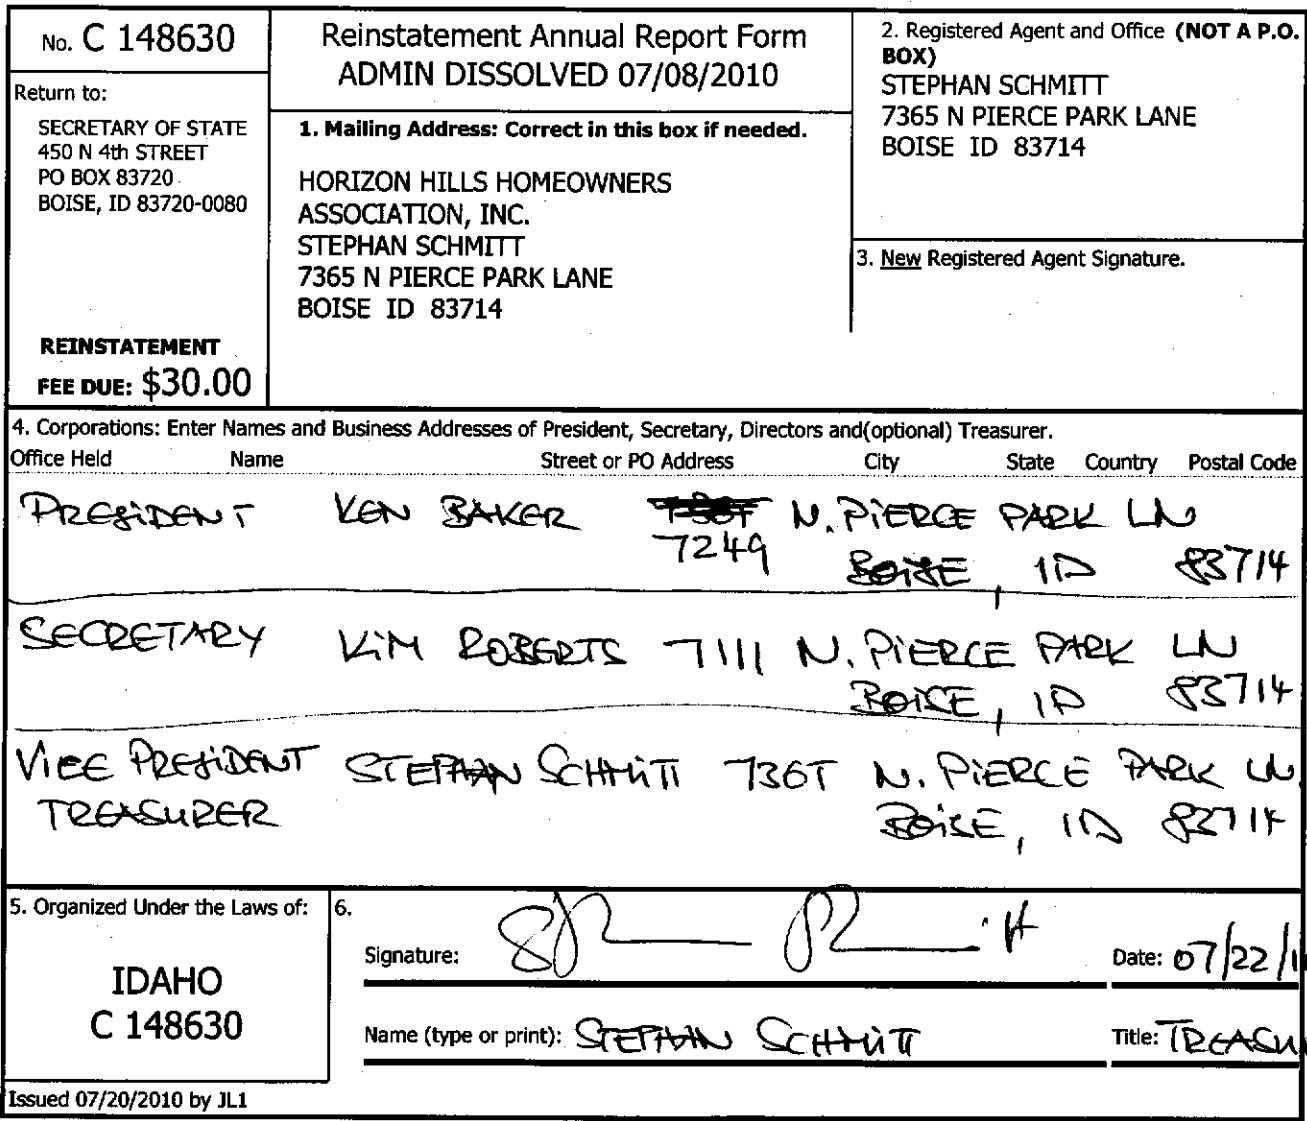 No. C 148630
Return to:
SECRETARY OF STATE
450 N 4th STREET
PO BOX 83720
BOISE, ID 83720-0080
REINSTATEMENT
FEE DUE: $30.00
Reinstatement Annual Report Form
ADMIN DISSOLVED 07/08/2010
1. Mailing Address: Correct in this box if needed.
HORIZON HILLS HOMEOWNERS
ASSOCIATION, INC.
STEPHAN SCHMITT
7365 N PIERCE PARK LANE
BOISE ID 83714
2. Registered Agent and Office (NOT A P.O.
BOX)
STEPHAN SCHMITT
7365 N PIERCE PARK LANE
BOISE ID 83714
3. New Registered Agent Signature.
4. Corporations: Enter Names and Business Addresses of President, Secretary, Directors and(optional) Treasurer.
Office Held Name Street or PO Address City State Country Postal Code
PRESIDENT KEN BAKER N. PIERCE PARK LN
7249 BOISE, ID 83714
SECRETARY KIM ROBERTS 7111 N. PIERCE PARK LN
BOISE, ID 83714
VICE PRESIDENT STEPHAN SCHMITT 7365 N. PIERCE PARK LN.
TREASURER BOISE, ID 83714
5. Organized Under the Laws of:
IDAHO
C 148630
6.
Signature: Date: 07/22/1
Name (type or print): STEPHAN SCHMITT Title: TREASU
Issued 07/20/2010 by JL1